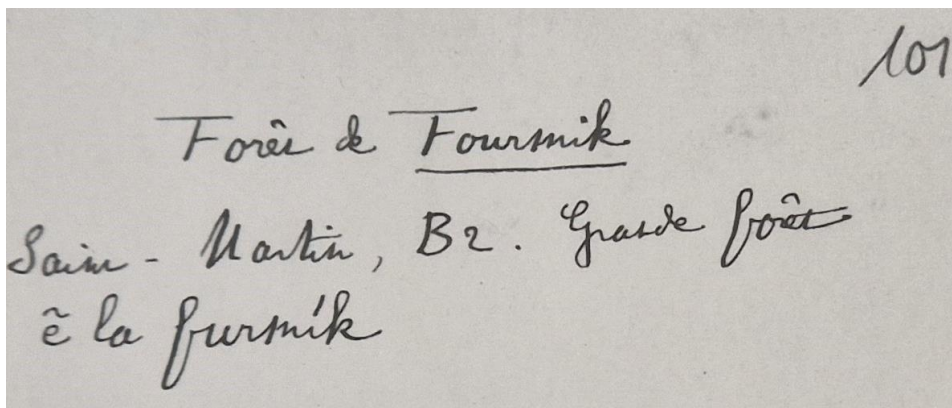 101
Forêt de Fourmik
Saint-Martin, B2. Grande forêt
ẽ la furmík